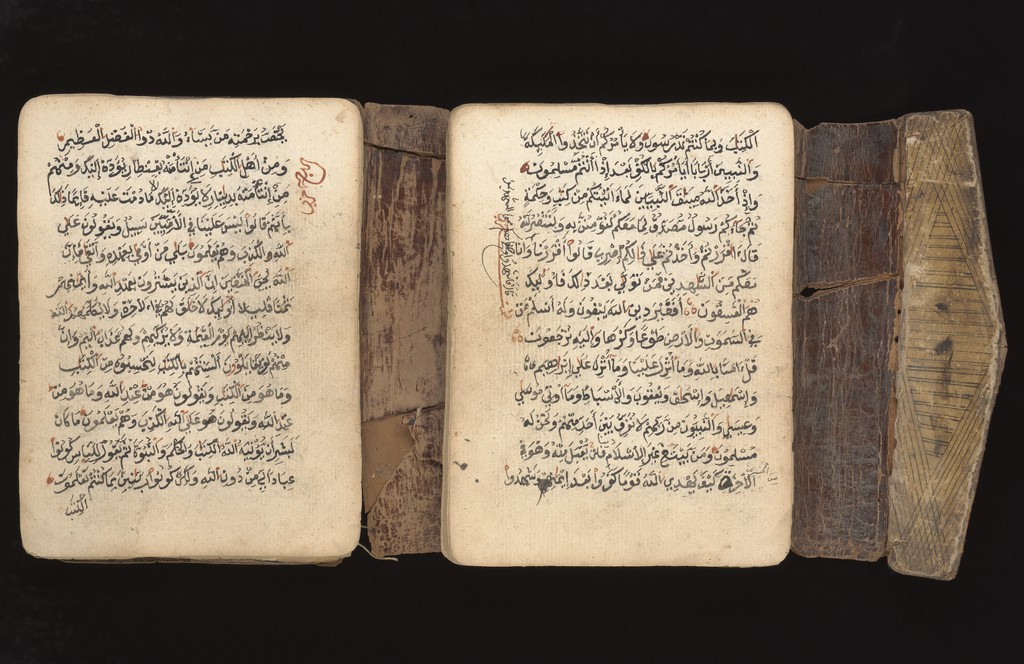 يختص برحمته من يشاء والله ذوا الفضل العظيم
ومن اهل الكتب من ان تامنه بقنطار يؤده اليك ومنهم
من ان تامنه بدينار لا يؤده اليك الا ما دمت عليه قائما ذلك
بانهم قالوا ليس علينا في الاميين سبيل ويقولون على
الله الكذب وهم يعلمون بلى من اوفى بعهده واتقى فان
الله يحب المتقين ان الذين يشترون بعهد الله وايمنهم
ثمنا قليلا اولئك لا خلق لهم في الاخرة ولا يكلمهم الله
ولا ينظر اليهم يوم القيمة ولا يزكيهم ولهم عذاب اليم وان
منهم لفريقا يلون السنتهم بالكتب لتحسبوه من الكتب
وما هو من الكتب ويقولون هو من عند الله وما هو من
عند الله ويقولون هو على الله الكذب وهم يعلمون ما كان
لبشر ان يؤتيه الله الكتب والحكم والنبوة ثم يقول للناس كونوا
عبادا لي من دون الله ولكن كونوا ربنين بما كنتم تعلمون
الكتب
الكتب وبما كنتم تدرسون ولا يامركم ان تتخذوا الملئكة
والنبيين اربابا ايامركم بالكفر بعد اذ انتم مسلمون
واذ اخذ الله ميثق النبيين لما اتيتكم من كتب وحكمة
ثم جاءكم رسول مصدق لما معكم لتؤمنن به ولتنصرنه
قال ءاقررتم واخذتم على ذلكم اصري قالوا اقررنا وانا
معكم من الشهدين فمن تولى بعد ذلك فاولئك
هم الفسقون افغير دين الله يبغون وله اسلم من
في السموت والارض طوعا وكرها واليه يرجعون
قل امنا بالله وما انزل علينا وما انزل على ابرهيم
واسمعيل واسحق ويعقوب والاسباط وما اوتي موسى
وعيسى والنبيون من ربهم لا نفرق بين احد منهم ونحن له
مسلمون ومن يبتغ غير الاسلام فلن يقبل منه وهو في
الاخرة كيف يهدي الله قوما كفروا بعد ايمنهم وشهدوا
قال فاشهدوا وانا معكم من الشهدين
من الخسرين